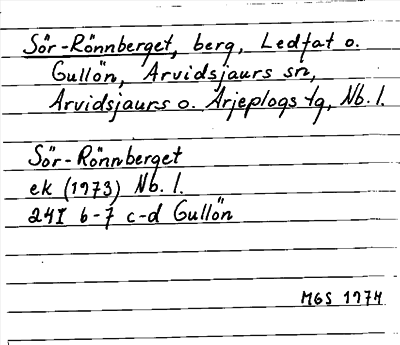 Sör-Rönnberget, berg, Ledfat o.
Gullön, Arvidsjaurs sn,
Arvidsjaurs o. Arjeplogs tg, Nb. l.
Sör-Rönnberget
ek (1973) Nb. l.
24I 6-7 c-d Gullön
MGS 1974